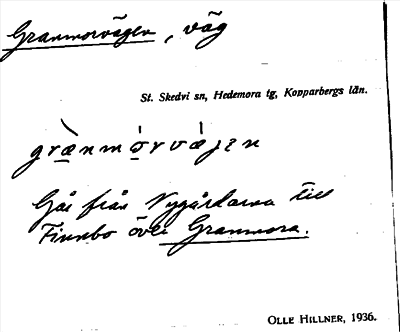 Granmorvägen, väg
St. Skedvi sn, Hedemora tg, Kopparbergs län.
grànmórvǽjen
Går från Nygårdarna till
Finnbo över Granmora.
OLLE HILLNER, 1936.